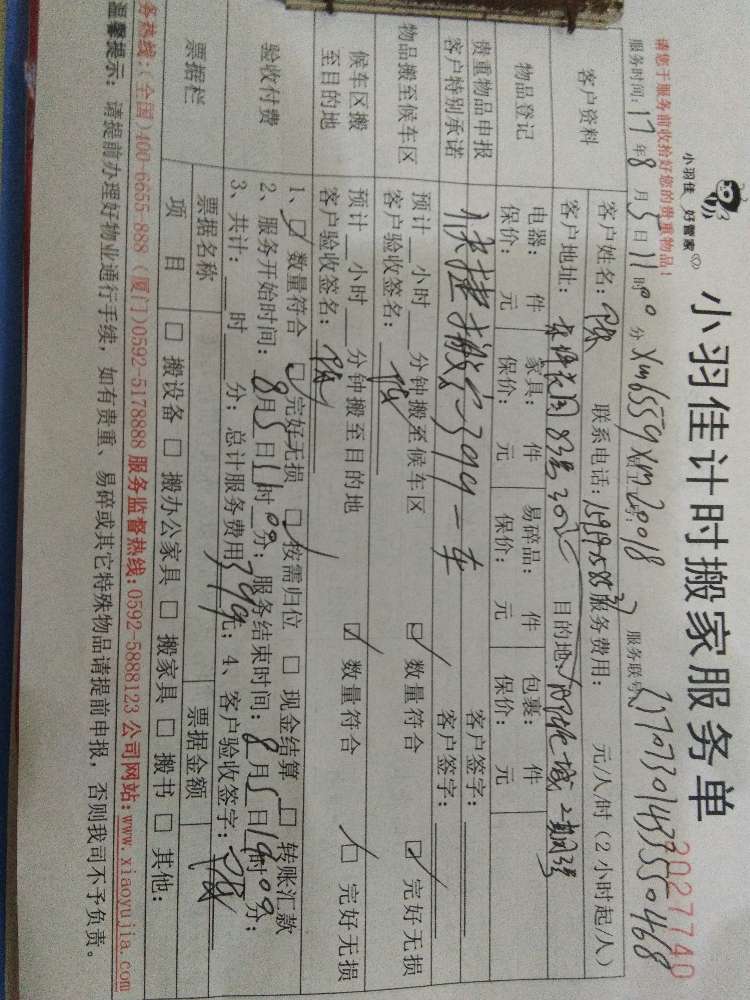 小羽佳计时搬家服务单
小羽佳 好管家
3027740
请您于服务前收拾好您的贵重物品！
服务时间：17年8月5日11时00分 Xm6559 Xm20018 服务联号：
客户资料
客户姓名：陈 联系电话： 服务费用： 元/人/时（2小时起/人）
客户地址： 花园83号302 目的地： 城二期
物品登记
电器： 件 家具： 件 易碎品： 件 包裹： 件
保价： 元 保价： 元 保价： 元 保价： 元
贵重物品申报
客户特别承诺
快捷搬家399一车
客户签字：
客户签字：
物品搬至候车区
预计 小时 分钟搬至候车区 ☑ 数量符合 ☑ 完好无损
客户验收签名：陈
候车区搬
至目的地
预计 小时 分钟搬至目的地 ☑ 数量符合 ☑ 完好无损
客户验收签名：陈
验收付费
1、☑ 数量符合 ☑ 完好无损 ☑ 按需归位 □ 现金结算 □ 转账汇款
2、服务开始时间：8月5日11时00分；服务结束时间：8月5日 时00分；
3、共计： 时 分；总计服务费用399元；4、客户验收签字：陈
票据栏
票据名称 票据金额
项 目 □ 搬设备 □ 搬办公家具 □ 搬家具 □ 搬书 □ 其他：
务热线：（全国）400-6655-888（厦门）0592-5178888 服务监督热线：0592-5888123 公司网站：www.xiaoyujia.com
温馨提示：请提前办理好物业通行手续，如有贵重、易碎或其它特殊物品请提前申报，否则我司不予负责。